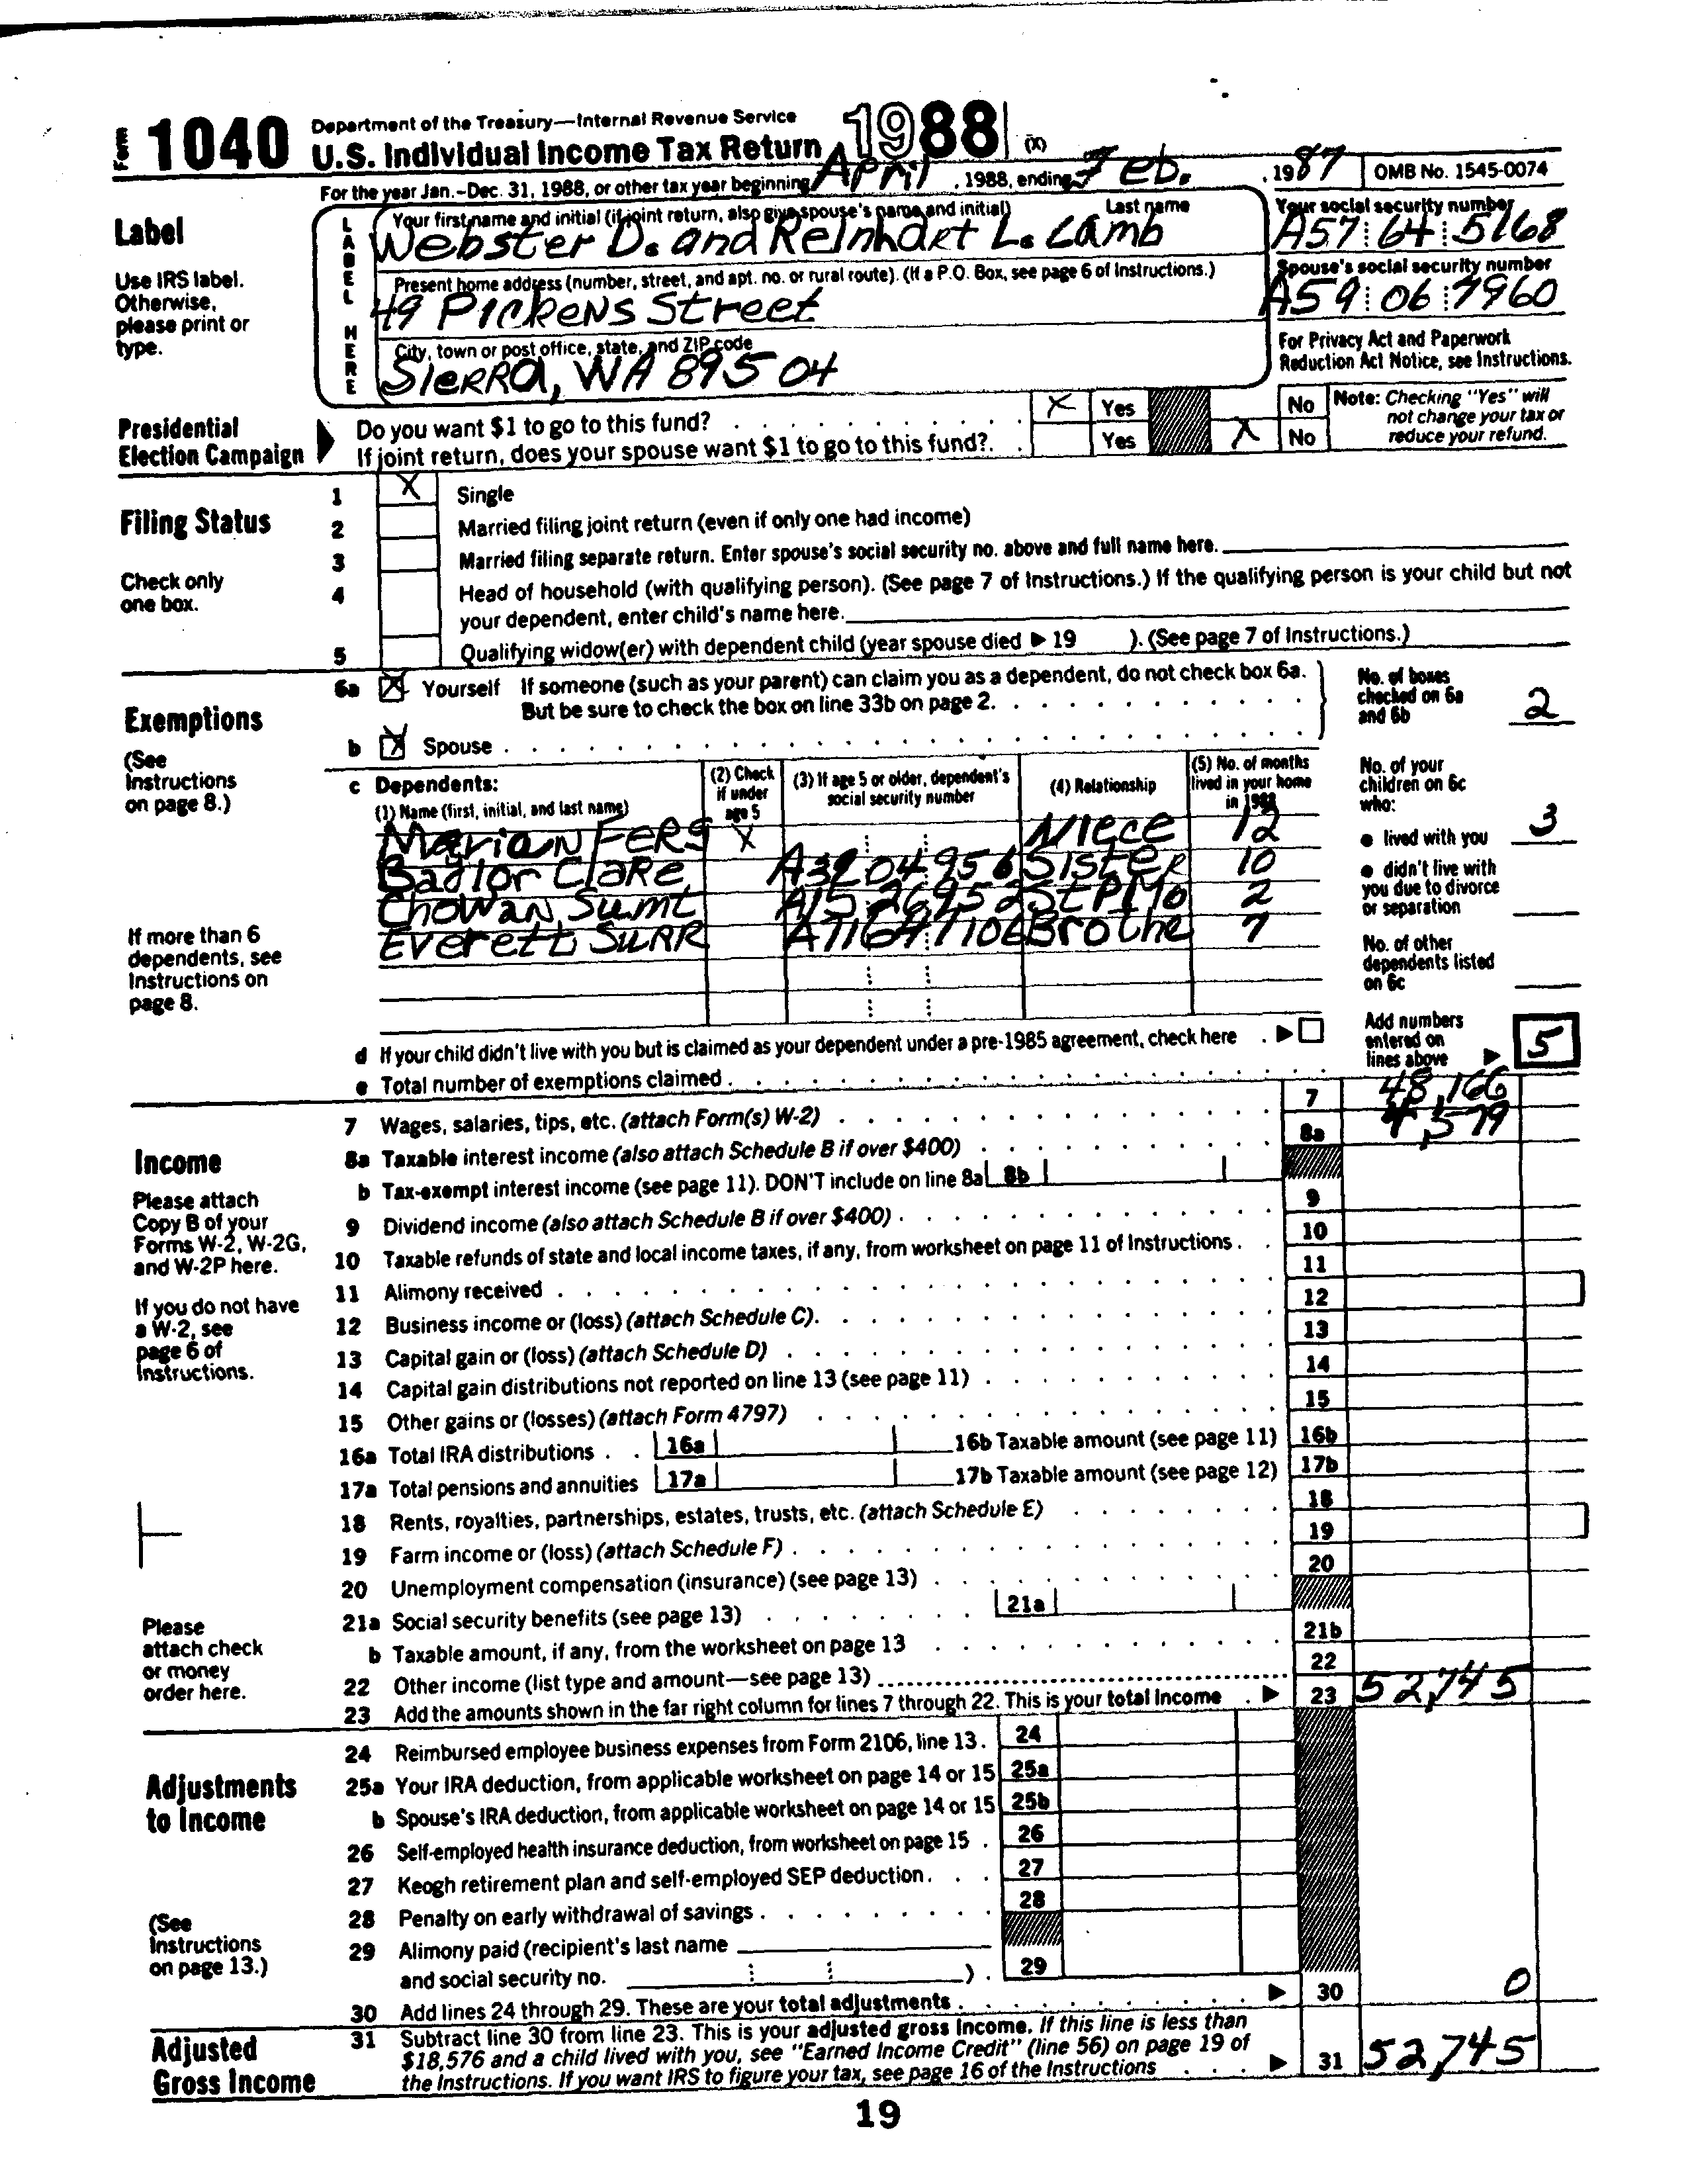 Form 1040 Department of the Treasury—Internal Revenue Service
U.S. Individual Income Tax Return 1988 (X)
For the year Jan.-Dec. 31, 1988, or other tax year beginning April , 1988, ending Feb. , 1987 OMB No. 1545-0074
Label
Use IRS label.
Otherwise,
please print or
type.
LABEL HERE
Your first name and initial (if joint return, also give spouse's name and initial) Last name
Webster D. and Reinhart L. Lamb
Your social security number
A57 64 5168
Present home address (number, street, and apt. no. or rural route). (If a P.O. Box, see page 6 of Instructions.)
49 Pickens Street
Spouse's social security number
A59 06 7960
City, town or post office, state, and ZIP code
Sierra, WA 89504
For Privacy Act and Paperwork
Reduction Act Notice, see Instructions.
Presidential
Election Campaign
Do you want $1 to go to this fund? X Yes No
If joint return, does your spouse want $1 to go to this fund? Yes X No
Note: Checking "Yes" will
not change your tax or
reduce your refund.
Filing Status
Check only
one box.
1 X Single
2 Married filing joint return (even if only one had income)
3 Married filing separate return. Enter spouse's social security no. above and full name here.
4 Head of household (with qualifying person). (See page 7 of Instructions.) If the qualifying person is your child but not
your dependent, enter child's name here.
5 Qualifying widow(er) with dependent child (year spouse died ▶ 19 ). (See page 7 of Instructions.)
Exemptions
(See
Instructions
on page 8.)
If more than 6
dependents, see
Instructions on
page 8.
6a X Yourself If someone (such as your parent) can claim you as a dependent, do not check box 6a.
But be sure to check the box on line 33b on page 2.
b X Spouse
No. of boxes
checked on 6a
and 6b 2
c Dependents:
(1) Name (first, initial, and last name)
(2) Check
if under
age 5
(3) If age 5 or older, dependent's
social security number
(4) Relationship
(5) No. of months
lived in your home
in 1988
Marion Fers X Niece 12
Badlor Clare A32 04 956 Sister 10
Chowan Sumt A15 26 952 StPMo 2
Everett Surr Brothe 7
No. of your
children on 6c
who:
● lived with you 3
● didn't live with
you due to divorce
or separation
No. of other
dependents listed
on 6c
d If your child didn't live with you but is claimed as your dependent under a pre-1985 agreement, check here ▶
e Total number of exemptions claimed
Add numbers
entered on
lines above ▶ 5
Income
Please attach
Copy B of your
Forms W-2, W-2G,
and W-2P here.
If you do not have
a W-2, see
page 6 of
Instructions.
Please
attach check
or money
order here.
7 Wages, salaries, tips, etc. (attach Form(s) W-2) 7 48,166
8a Taxable interest income (also attach Schedule B if over $400) 8a 4,579
b Tax-exempt interest income (see page 11). DON'T include on line 8a 8b
9 Dividend income (also attach Schedule B if over $400) 9
10 Taxable refunds of state and local income taxes, if any, from worksheet on page 11 of Instructions 10
11 Alimony received 11
12 Business income or (loss) (attach Schedule C) 12
13 Capital gain or (loss) (attach Schedule D) 13
14 Capital gain distributions not reported on line 13 (see page 11) 14
15 Other gains or (losses) (attach Form 4797) 15
16a Total IRA distributions 16a 16b Taxable amount (see page 11) 16b
17a Total pensions and annuities 17a 17b Taxable amount (see page 12) 17b
18 Rents, royalties, partnerships, estates, trusts, etc. (attach Schedule E) 18
19 Farm income or (loss) (attach Schedule F) 19
20 Unemployment compensation (insurance) (see page 13) 20
21a Social security benefits (see page 13) 21a
b Taxable amount, if any, from the worksheet on page 13 21b
22 Other income (list type and amount—see page 13) 22
23 Add the amounts shown in the far right column for lines 7 through 22. This is your total income ▶ 23 52,745
Adjustments
to Income
(See
Instructions
on page 13.)
24 Reimbursed employee business expenses from Form 2106, line 13. 24
25a Your IRA deduction, from applicable worksheet on page 14 or 15 25a
b Spouse's IRA deduction, from applicable worksheet on page 14 or 15 25b
26 Self-employed health insurance deduction, from worksheet on page 15 26
27 Keogh retirement plan and self-employed SEP deduction 27
28 Penalty on early withdrawal of savings 28
29 Alimony paid (recipient's last name
and social security no. ) 29
30 Add lines 24 through 29. These are your total adjustments ▶ 30 0
Adjusted
Gross Income
31 Subtract line 30 from line 23. This is your adjusted gross income. If this line is less than
$18,576 and a child lived with you, see "Earned Income Credit" (line 56) on page 19 of
the Instructions. If you want IRS to figure your tax, see page 16 of the Instructions ▶ 31 52,745
19